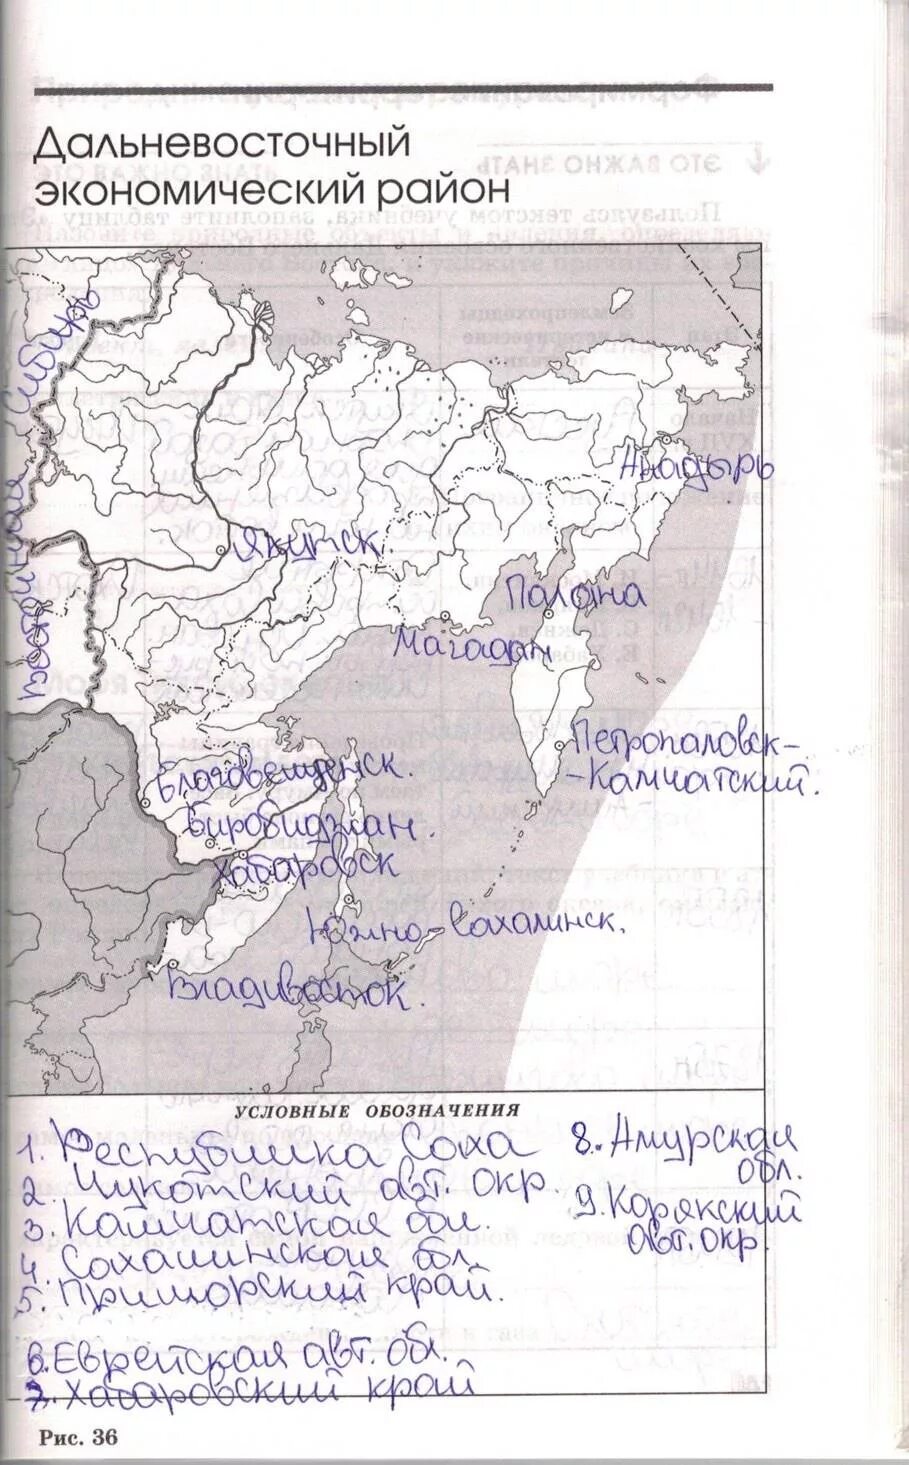 Дальневосточный
экономический район
Восточная Сибирь
Анадырь
Якутск.
Палана
Магадан
Петропаловск-
-Камчатский.
Благовещенск.
Биробиджан.
Хабаровск
Южно-Сахалинск.
Владивосток.
УСЛОВНЫЕ ОБОЗНАЧЕНИЯ
1. Республика Саха
2. Чукотский авт. окр.
3. Камчатская обл.
4. Сахалинская обл
5. Приморский край.
6. Еврейская авт. обл.
7. Хабаровский край
8. Амурская
обл.
9. Корякский
авт. окр.
Рис. 36